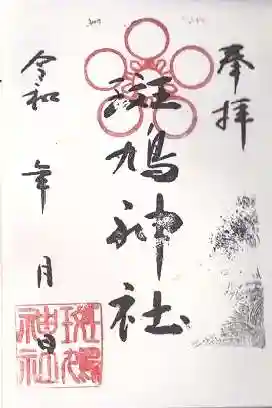 奉拝
斑鳩神社
令和 年 月 日
斑鳩神社